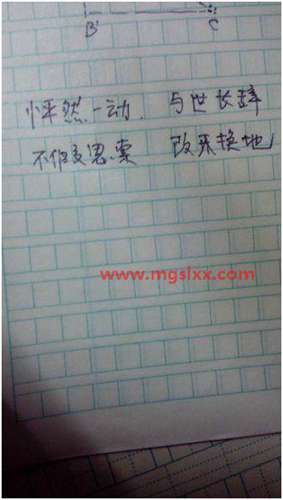 B' C
怦然一动. 与世长辞
不假思索 改天换地
www.mgslxx.com